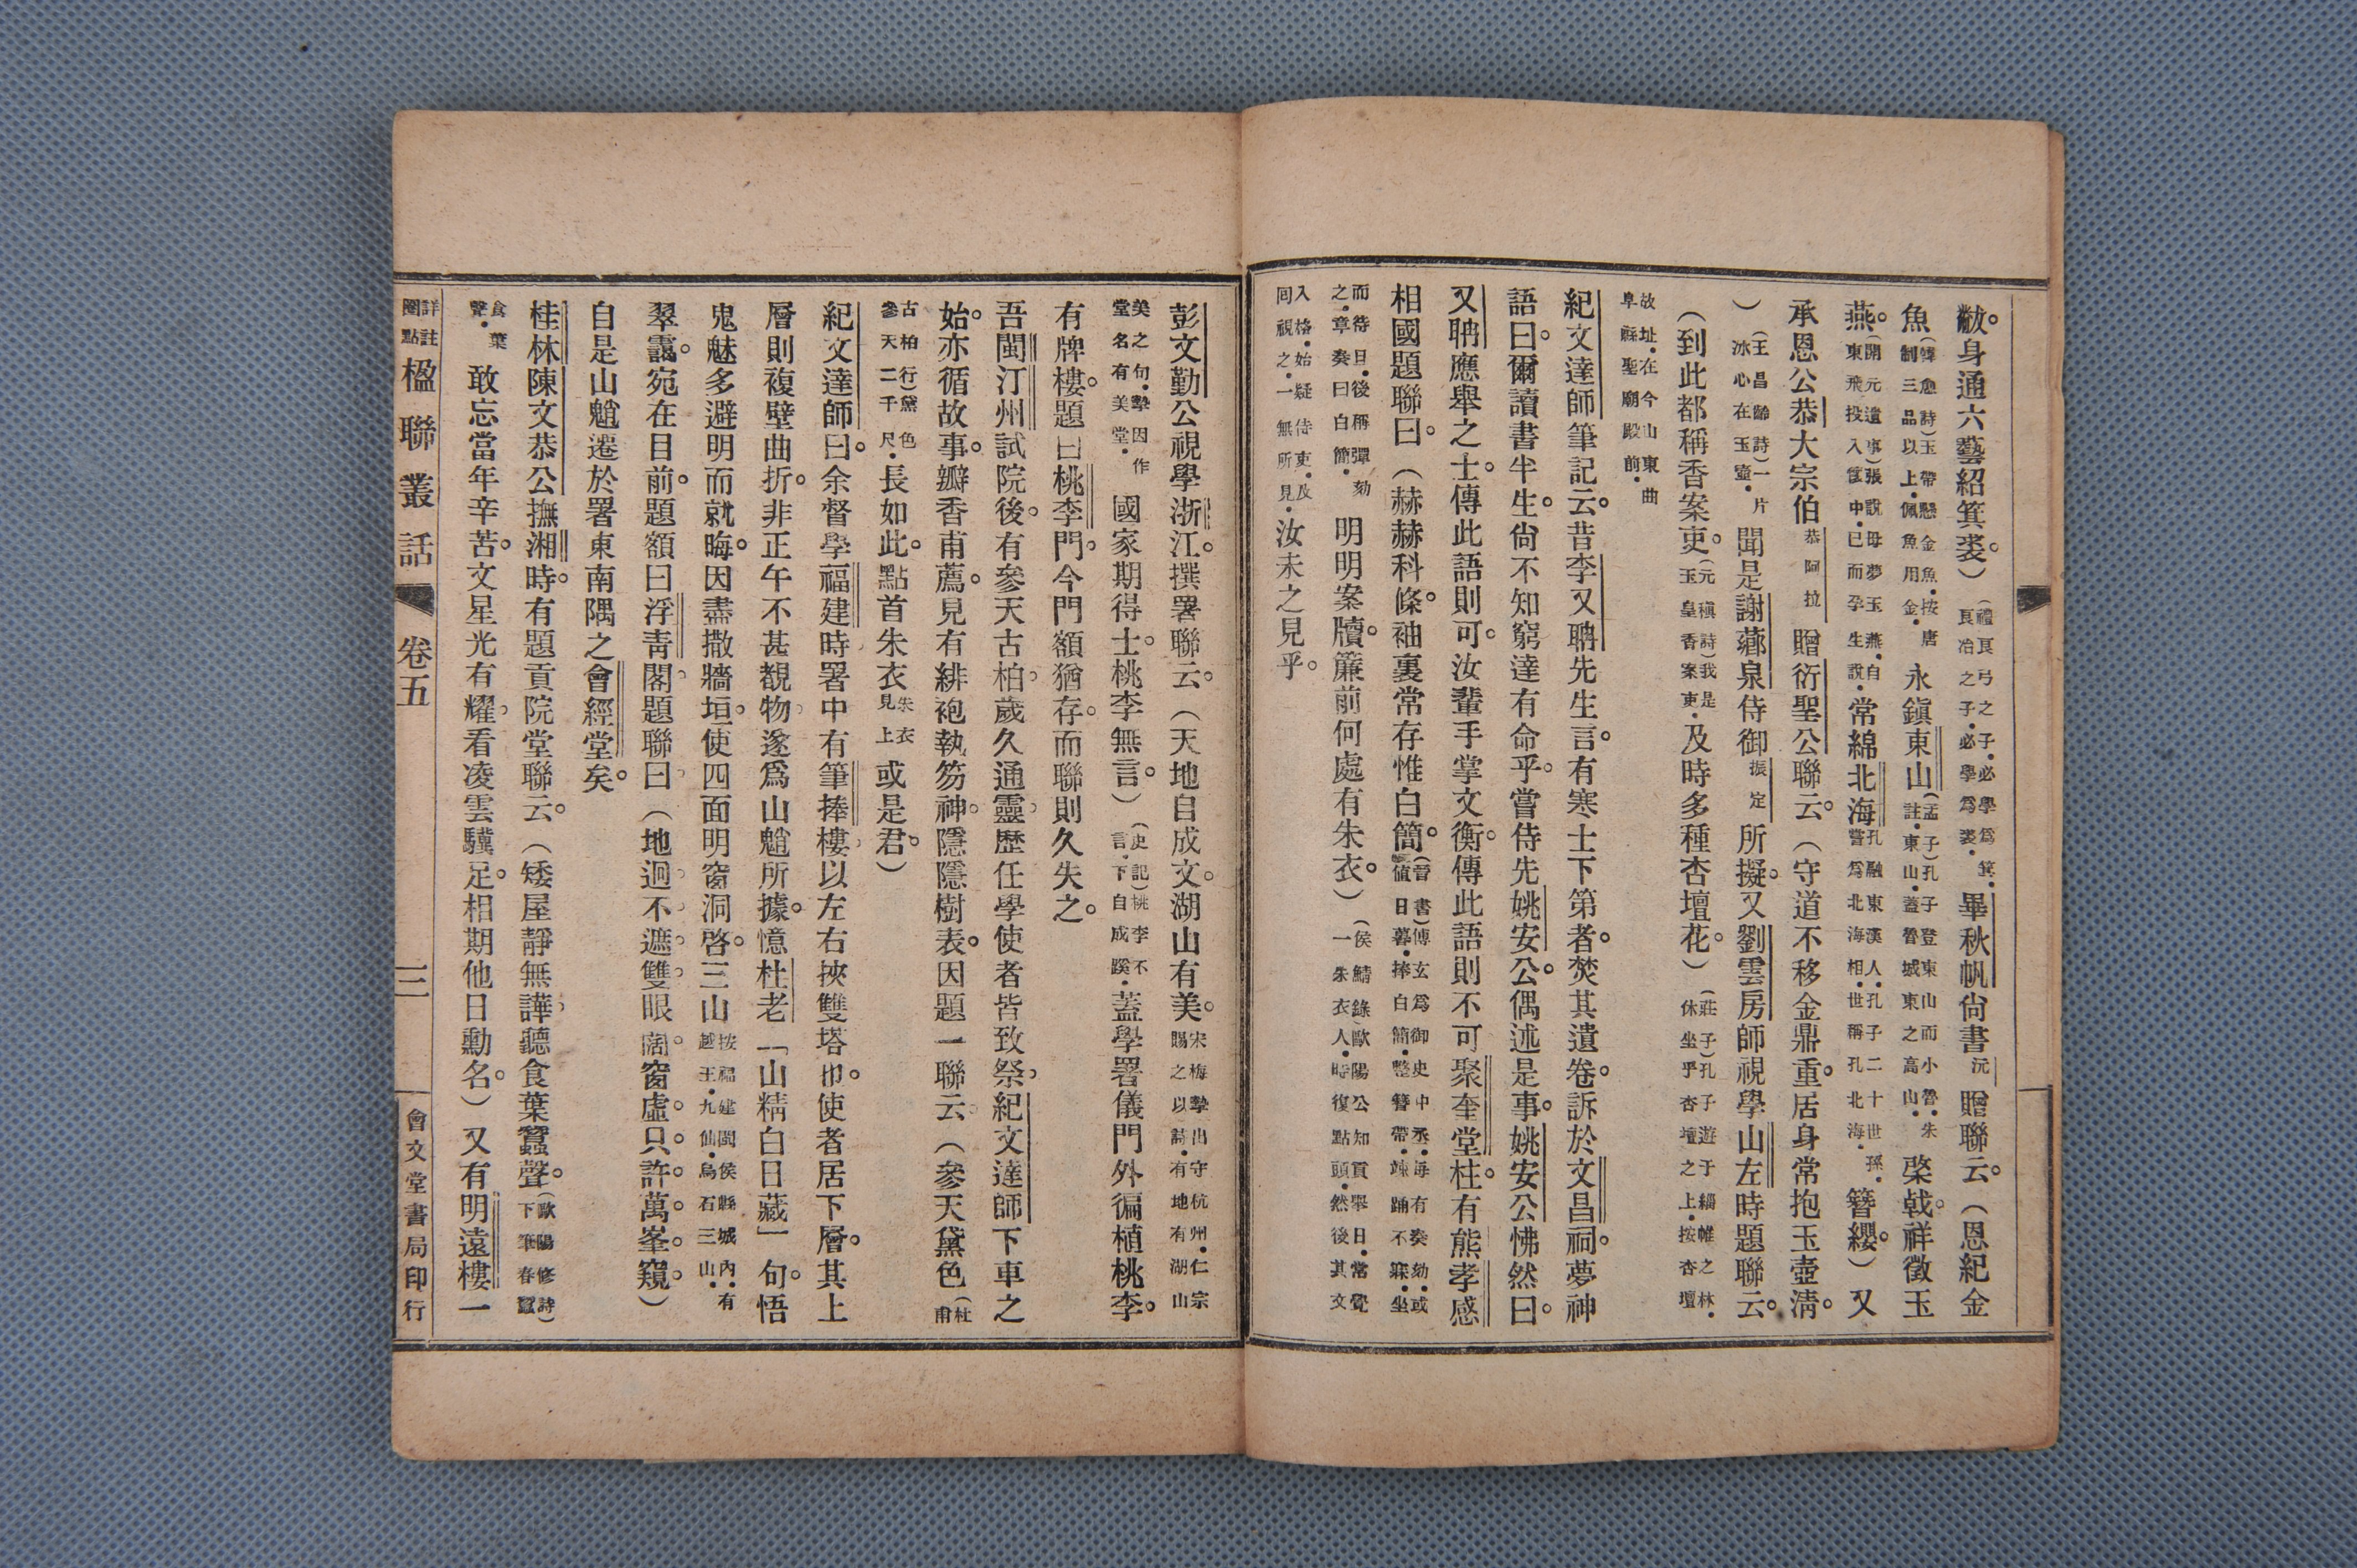 黻。身通六藝紹箕裘。）（禮）良弓之子。必學爲箕。良冶之子。必學爲裘。畢秋帆尙書沅贈聯云。（恩紀金
魚（韓愈詩）玉帶懸金魚。按唐制三品以上。佩魚用金。永鎭東山（孟子）孔子登東山而小魯。朱註。東山。蓋魯城東之高山。棨戟。祥徵玉
燕。（開元遺事）張說母夢玉燕。自東飛投入懷中。已而孕生說。常綿北海孔融東漢人。孔子二十世孫。嘗爲北海相。世稱孔北海。簪纓。）又
承恩公恭大宗伯恭阿拉贈衍聖公聯云。（守道不移金鼎重。居身常抱玉壺淸。
）（王昌齡詩）一片冰心在玉壺。聞是謝薌泉侍御振定所擬。又劉雲房師視學山左時題聯云。
（到此都稱香案吏。（元稹詩）我是玉皇香案吏。及時多種杏壇花。）（莊子）孔子遊于緇帷之林。休坐乎杏壇之上。按杏壇
故址。在今山東曲阜縣聖廟殿前。
紀文達師筆記云。昔李又聃先生言。有寒士下第者。焚其遺卷。訴於文昌祠。夢神
語曰。爾讀書半生。尙不知窮達有命乎。嘗侍先姚安公。偶述是事。姚安公怫然曰。
又聃應舉之士。傳此語則可。汝輩手掌文衡。傳此語則不可聚奎堂柱。有熊孝感
相國題聯曰。（赫赫科條。袖裏常存惟白簡。（晉書）傅玄爲御史中丞。每有奏劾。或值日暮。捧白簡。整簪帶。竦踊不寐。坐
而待旦。後稱彈劾之章奏曰白簡。明明案牘。簾前何處有朱衣。）（侯鯖錄）歐陽公知貢舉日。常覺一朱衣人。時復點頭。然後其文
入格。始疑侍吏。及囘視之。一無所見。汝未之見乎。
彭文勤公視學浙江。撰署聯云。（天地自成文。湖山有美。宋梅摯出守杭州。仁宗賜之以詩。有地有湖山
美之句。摯因作堂名有美堂。國家期得士。桃李無言。）（史記）桃李不言。下自成蹊。蓋學署儀門外徧植桃李。
有牌樓。題曰桃李門。今門額猶存。而聯則久失之。
吾閩汀州試院後。有參天古柏。歲久通靈。歷任學使者皆致祭。紀文達師下車之
始。亦循故事。瓣香甫薦。見有緋袍執笏神。隱隱樹表。因題一聯云。（參天黛色（杜甫
古柏行）黛色參天二千尺。長如此。點首朱衣朱衣見上或是君。）
紀文達師曰。余督學福建時。署中有筆捧樓。以左右挾雙塔也。使者居下層。其上
層則複壁曲折。非正午不甚覩物。遂爲山魈所據。憶杜老「山精白日藏」句。悟
鬼魅多避明而就晦。因盡撒牆垣。使四面明窗洞啓。三山按福建閩侯縣城內。有越王。九仙。烏石三山。
翠靄。宛在目前。題額曰浮靑閣。題聯曰。（地迥不遮雙眼闊。窗虛只許萬峯窺。）
自是山魈遷於署東南隅之會經堂矣。
桂林陳文恭公撫湘時。有題貢院堂聯云。（矮屋靜無譁。聽食葉蠶聲。（歐陽修詩）下筆春蠶
食葉聲。敢忘當年辛苦。文星光有耀。看凌雲驥足。相期他日勳名。）又有明遠樓一
詳註圈點 楹聯叢話 卷五 三 會文堂書局印行